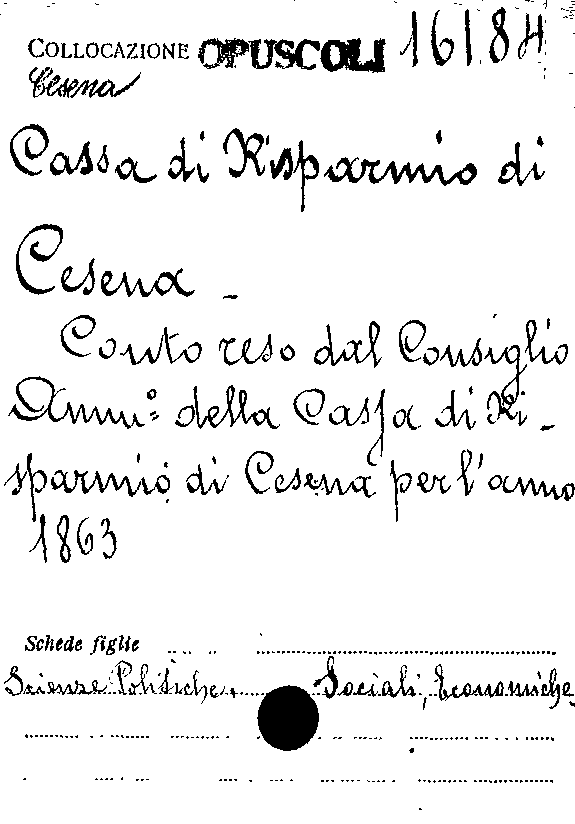 COLLOCAZIONE OPUSCOLI 16184
Cesena
Cassa di Risparmio di
Cesena -
Conto reso dal Consiglio
Ammº della Cassa di Ri-
sparmio di Cesena per l'anno
1863
Schede figlie
Scienze Politiche, Sociali, Economiche